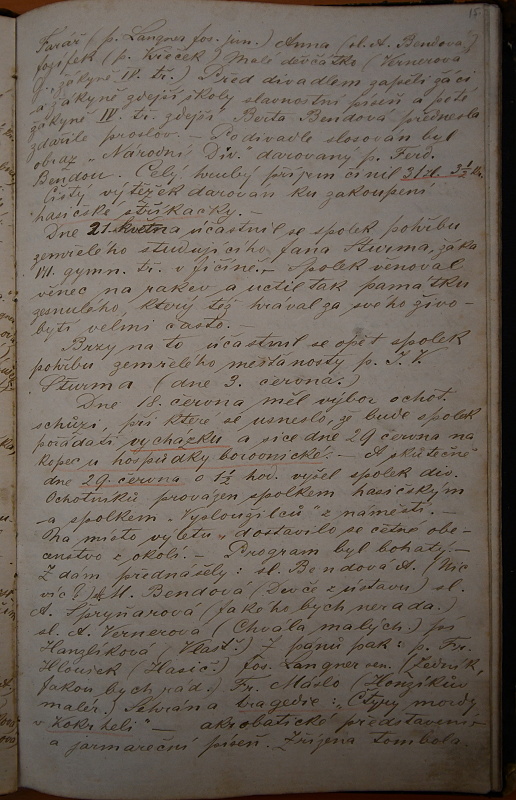 15.
Farář (p. Langner jos. jun.) Anna (sl. A. Bendová)
fojifek (p. Kříček) Malé děvčátko (Vernerová
J., žákyně IV. tř.) Před divadlem zapěli žáci
a žákyně zdejší školy slavnostní píseň a pěté
žákyně IV. tř. zdejší Berta Bendová přednesla
zdařile proslov. – Po divadle slosován byl
obraz „Národní Div." darovaný p. Ferd.
Bendou. Celý hrubý příjem činil 31 zl. 3½ k.
Čistý výtěžek darován ku zakoupení
hasičské stříkačky. –
Dne 21. května účastnil se spolek pohřbu
zemřelého studujícího Jana Šturma, žáka
VII. gymn. tř. v Jičíně. – Spolek věnoval
věnec na rakev a uctil tak památku
zesnulého, který též hrával za svého živo-
bytí velmi často. –
Brzy na to účastnil se opět spolek
pohřbu zemřelého měšťanosty p. J. V.
Šturma (dne 3. června.)
Dne 18. června měl výbor ochot.
schůzi, při které se usneslo, že bude spolek
pořádati vycházku a sice dne 29 června na
kopec u hospůdky borovnické. – A skutečně
dne 29. června o 1½ hod. vyšel spolek div.
Ochotníků provázen spolkem hasičským
a spolkem „Vysloužilců" z náměstí. –
Na místo výletu dostavilo se četné obe-
censtvo z okolí. – Program byl bohatý. –
Z dam přednášely: sl. Bendová A. (Nic
víc?) sl. M. Bendová (Děvče z ústavu) sl.
A. Špryňarová (Jako bych nerada.)
sl. A. Vernerová (Chvála malých.) pí
Hanzlíková (Vlast.) Z pánů pak: p. Fr.
Hloušek (Hasič.) Jos. Langner sen. (Zedník,
Jakou bych rád.) Fr. Máslo (Honzíkův
malér.) Sehrána tragedie: „Čtyry mordy
v Kokrheli" – akrobatické představení
a jarmareční píseň. Zřízena tombola.